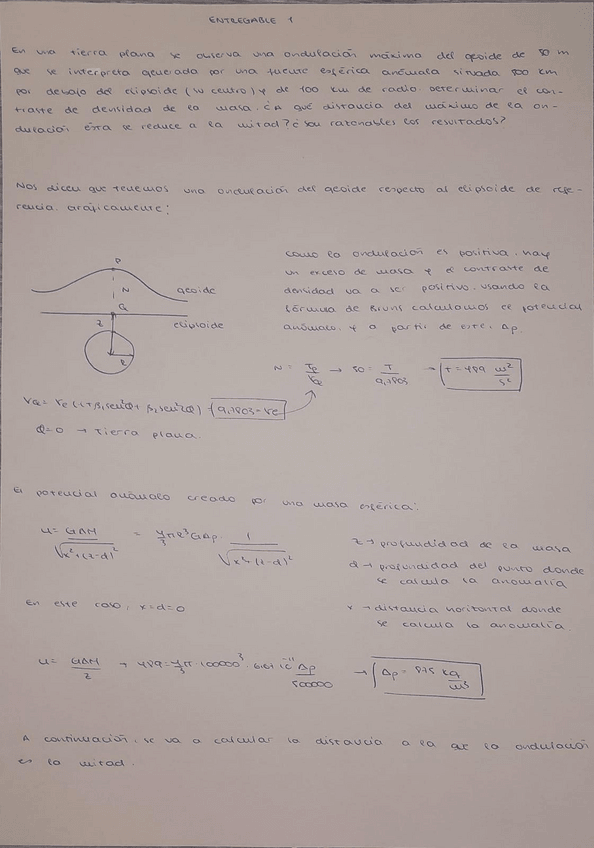 ENTREGABLE 1
En una tierra plana se observa una ondulación máxima del geoide de 50 m
que se interpreta generada por una fuente esférica anómala situada 500 km
por debajo del elipsoide (su centro) y de 100 km de radio. Determinar el con-
traste de densidad de la masa. ¿A qué distancia del máximo de la on-
dulación ésta se reduce a la mitad? ¿Son razonables los resultados?
Nos dicen que tenemos una ondulación del geoide respecto al elipsoide de refe-
rencia. Gráficamente:
P
N
geoide
Q
elipsoide
z
R
Como la ondulación es positiva, hay
un exceso de masa y el contraste de
densidad va a ser positivo. Usando la
fórmula de Bruns calculamos el potencial
anómalo, y a partir de este, Δρ.
N = Tp/γQ → 50 = T/9,7803 → T = 489 m²/s²
γQ = γe (1+β₁sen²φ+β₂sen²2φ) → 9,7803 = γe
φ=0 → tierra plana.
El potencial anómalo creado por una masa esférica:
u = GΔM/√(x²+(z-d)²) = 4/3 π R³ G Δρ · 1/√(x²+(z-d)²)
z → profundidad de la masa
d → profundidad del punto donde
se calcula la anomalía
En este caso, x=d=0
x → distancia horizontal donde
se calcula la anomalía
u = GΔM/z → 489 = 4/3 π 100000³ · 6,67 10⁻¹¹ Δρ/500000 → Δρ = 875 kg/m³
A continuación, se va a calcular la distancia a la que la ondulación
es la mitad.